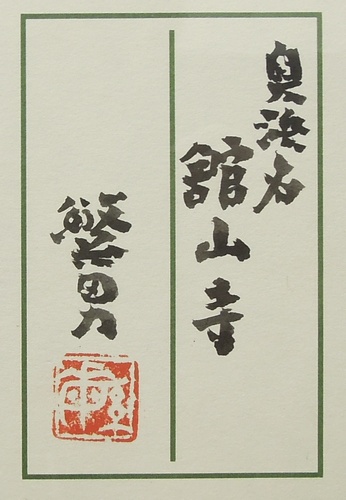 奥浜名
舘山寺
繁男